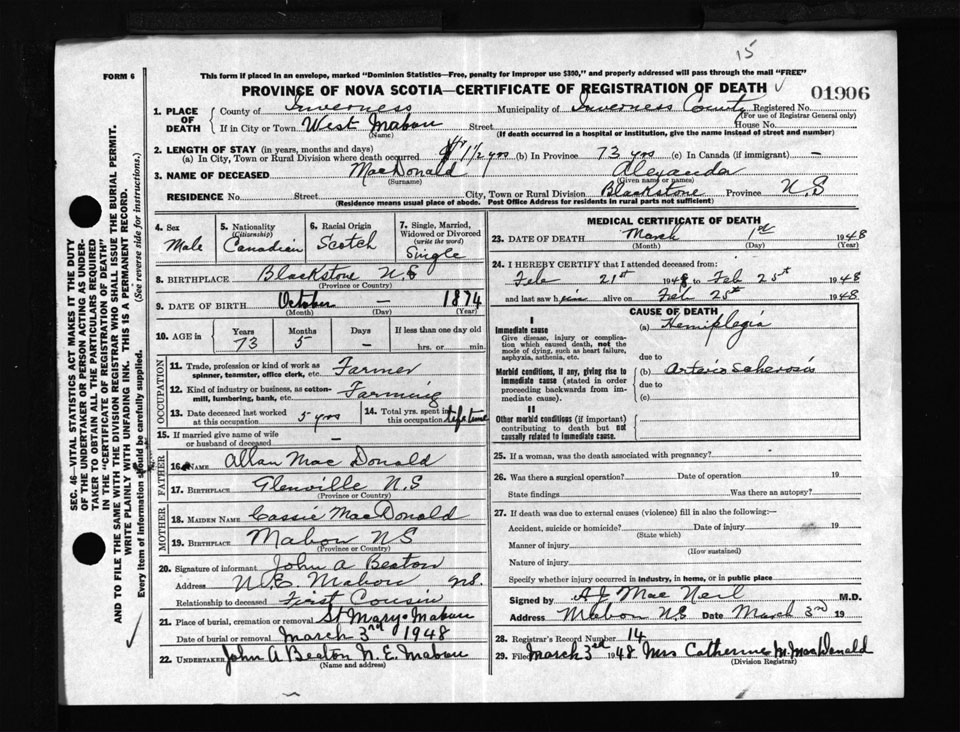 15
FORM 6
This form if placed in an envelope, marked "Dominion Statistics—Free, penalty for improper use $300," and properly addressed will pass through the mail "FREE"
PROVINCE OF NOVA SCOTIA—CERTIFICATE OF REGISTRATION OF DEATH
01906
1. PLACE OF DEATH
County of Inverness Municipality of Inverness County Registered No.
(For use of Registrar General only)
If in City or Town West Mabou Street House No.
(Name) (If death occurred in a hospital or institution, give the name instead of street and number)
2. LENGTH OF STAY (in years, months and days)
(a) In City, Town or Rural Division where death occurred 1 1/2 yrs (b) In Province 73 yrs (c) In Canada (if immigrant) —
3. NAME OF DECEASED MacDonald Alexander
(Surname) (Given name or names)
RESIDENCE No. Street City, Town or Rural Division Blackstone Province N.S
(Residence means usual place of abode. Post Office Address for residents in rural parts not sufficient)
4. Sex
Male
5. Nationality
(Citizenship)
Canadian
6. Racial Origin
Scotch
7. Single, Married, Widowed or Divorced
(write the word)
Single
8. BIRTHPLACE Blackstone N.S
(Province or Country)
9. DATE OF BIRTH October — 1874
(Month) (Day) (Year)
10. AGE in
Years Months Days If less than one day old
73 5 — hrs. or min.
OCCUPATION
11. Trade, profession or kind of work as spinner, teamster, office clerk, etc. Farmer
12. Kind of industry or business, as cotton-mill, lumbering, bank, etc. Farming
13. Date deceased last worked at this occupation 5 yrs
14. Total yrs. spent in this occupation life time
15. If married give name of wife or husband of deceased —
FATHER
16. NAME Allan Mac Donald
17. BIRTHPLACE Glenville N.S
(Province or Country)
MOTHER
18. MAIDEN NAME Cassie MacDonald
19. BIRTHPLACE Mabou NS
(Province or Country)
20. Signature of informant John A Beaton
Address N.E. Mabou NS.
Relationship to deceased First Cousin
21. Place of burial, cremation or removal St Marys Mabou
Date of burial or removal March 3rd 1948
22. UNDERTAKER John A Beaton N.E. Mabou
(Name and address)
MEDICAL CERTIFICATE OF DEATH
23. DATE OF DEATH March 1st 1948
(Month) (Day) (Year)
24. I HEREBY CERTIFY that I attended deceased from:
Feb 21st 1948 to Feb 25th 1948
and last saw him alive on Feb 25th 1948
CAUSE OF DEATH
I
Immediate cause
Give disease, injury or complication which caused death, not the mode of dying, such as heart failure, asphyxia, asthenia, etc.
(a) Hemiplegia
due to
Morbid conditions, if any, giving rise to immediate cause (stated in order proceeding backwards from immediate cause).
(b) Arterio Scherosis
due to
(c)
II
Other morbid conditions (if important) contributing to death but not causally related to immediate cause.
25. If a woman, was the death associated with pregnancy?
26. Was there a surgical operation? Date of operation 19
State findings Was there an autopsy?
27. If death was due to external causes (violence) fill in also the following:—
Accident, suicide or homicide? Date of injury 19
(State which)
Manner of injury
(How sustained)
Nature of injury
Specify whether injury occurred in industry, in home, or in public place
Signed by A J Mac Neil M.D.
Address Mabou N.S Date March 3rd 19
28. Registrar's Record Number 14
29. Filed March 3rd 1948 Mrs Catherine M. MacDonald
(Division Registrar)
SEC. 46—VITAL STATISTICS ACT MAKES IT THE DUTY
OF THE UNDERTAKER OR PERSON ACTING AS UNDERTAKER TO OBTAIN ALL THE PARTICULARS REQUIRED
IN THE "CERTIFICATE OF REGISTRATION OF DEATH"
AND TO FILE THE SAME WITH THE DIVISION REGISTRAR WHO SHALL ISSUE THE BURIAL PERMIT.
WRITE PLAINLY WITH UNFADING INK. THIS IS A PERMANENT RECORD.
Every item of information should be carefully supplied. (See reverse side for instructions.)